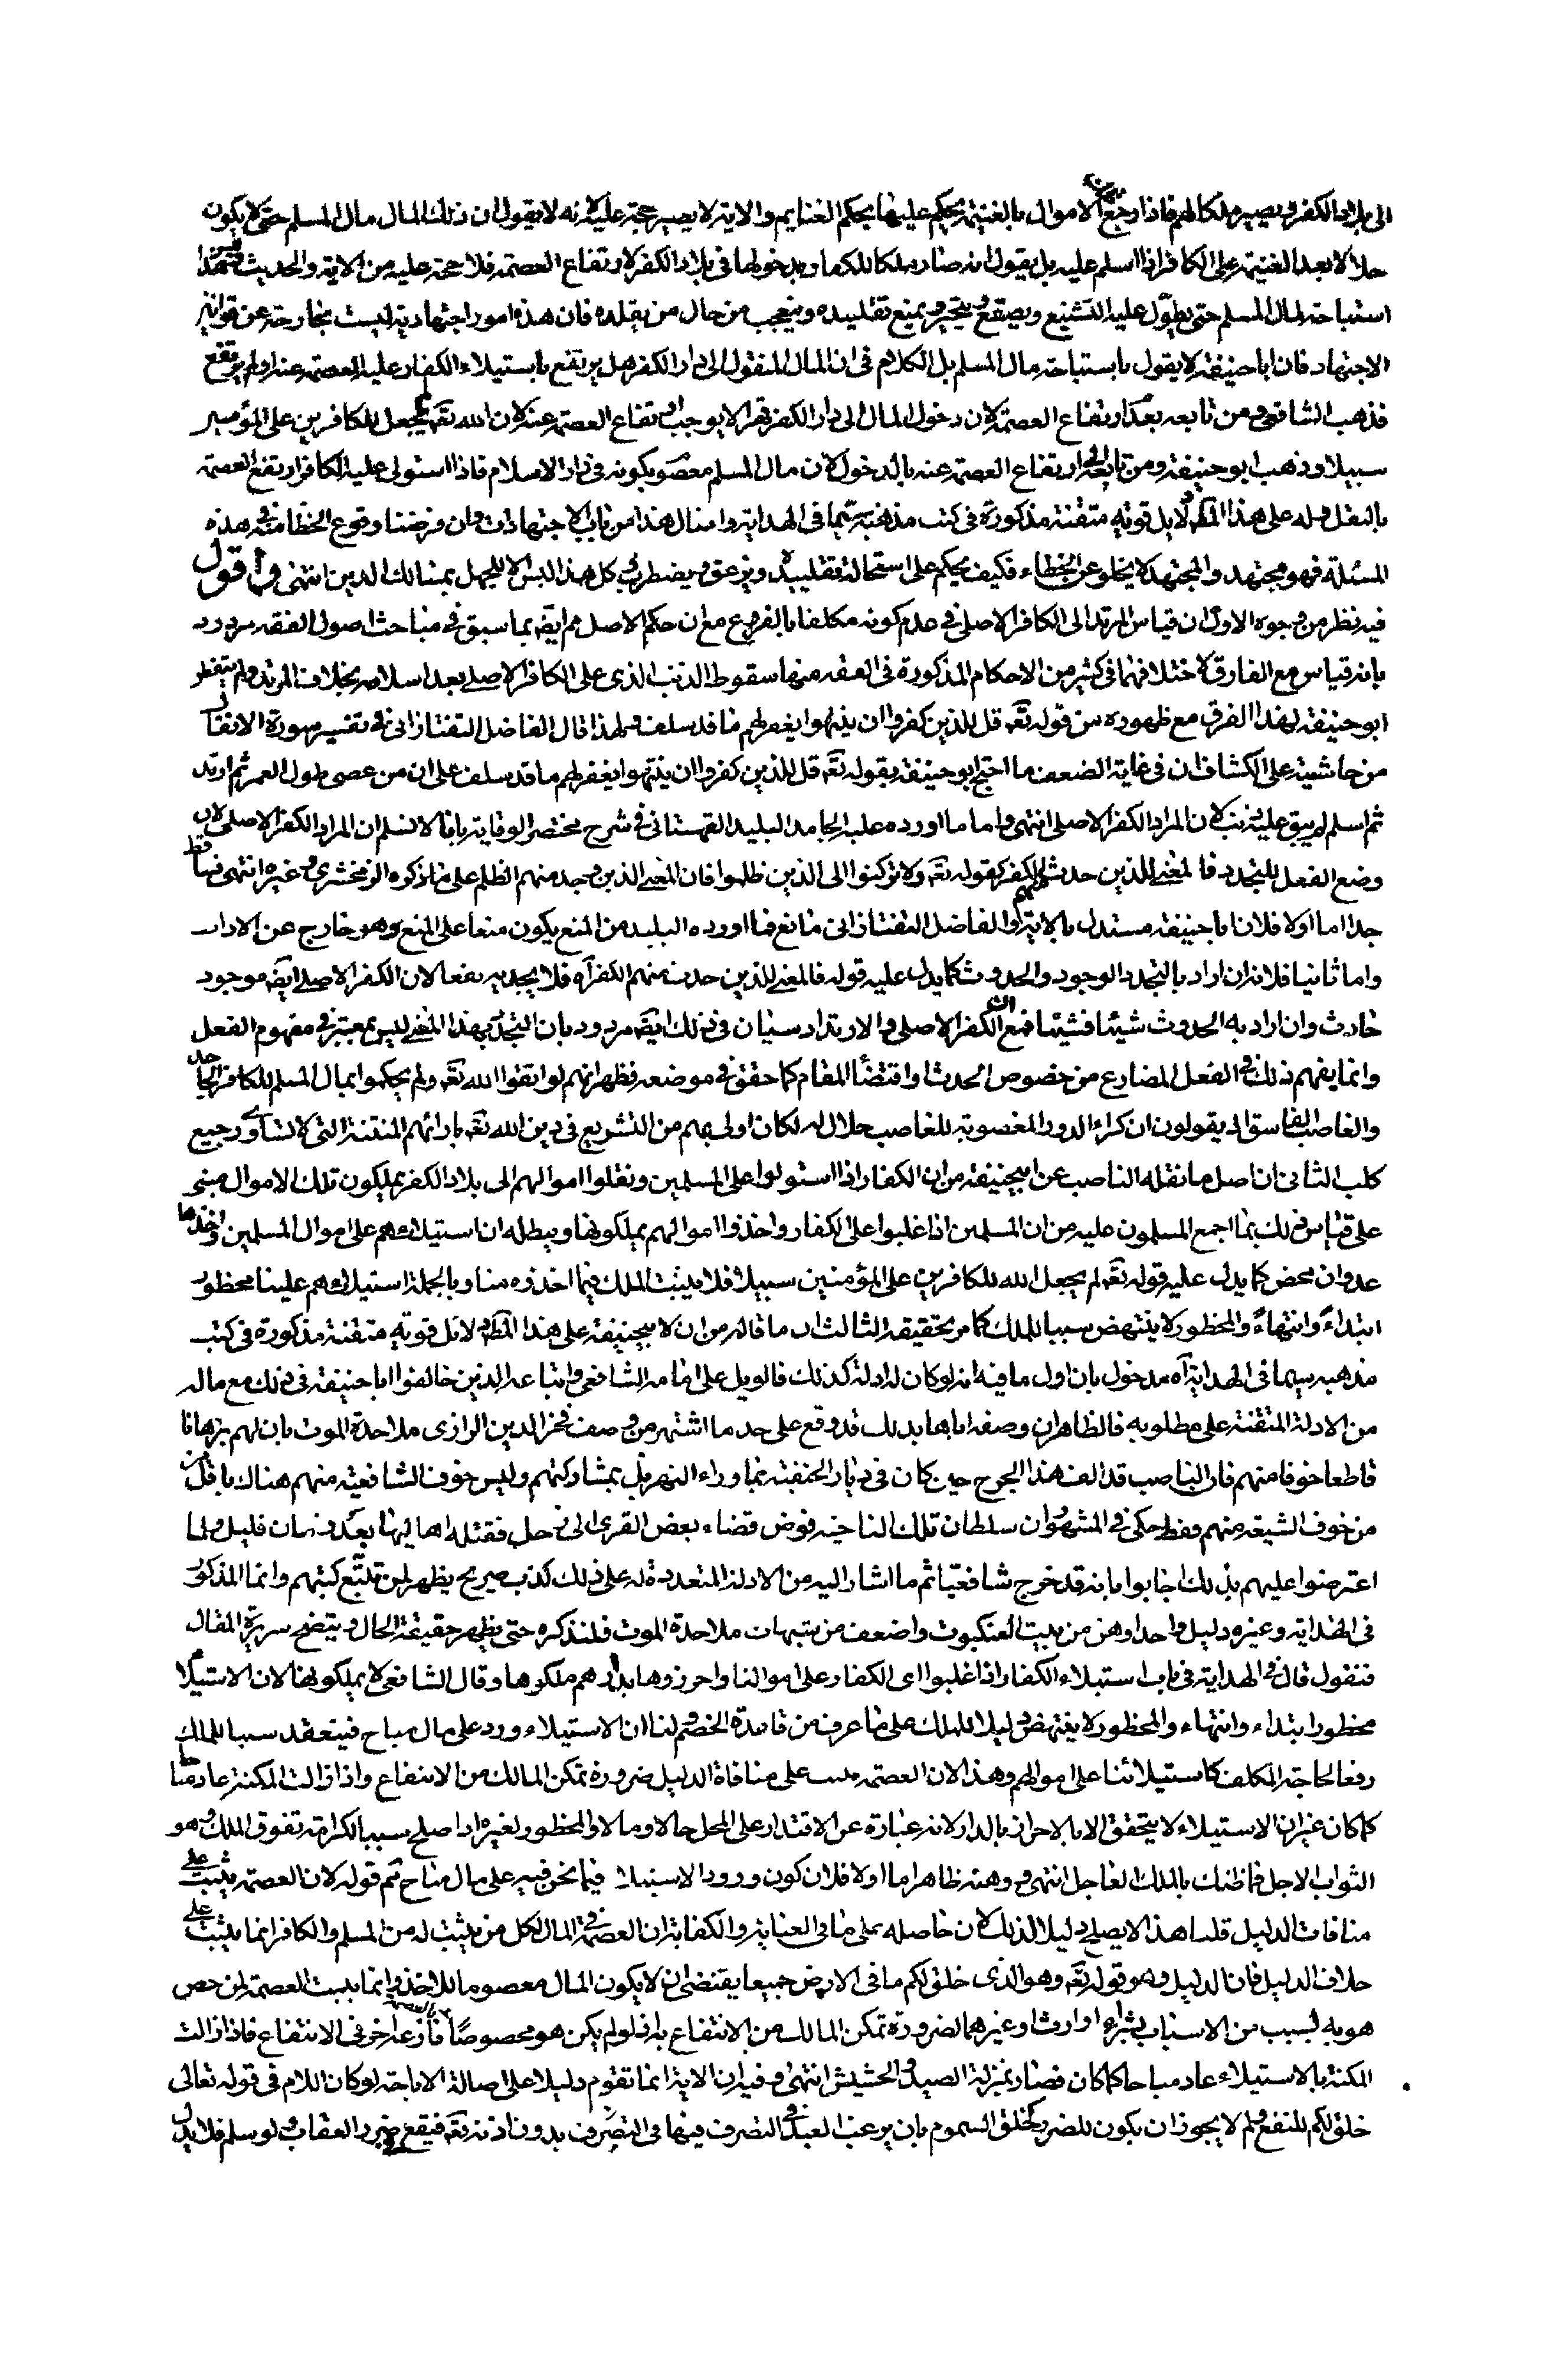 الى بلاد الكفر ويصير ملكا لهم فاذا رجع الاموال بالغنيمة يحكم عليها بحكم الغنايم والاية لا يصير حجة عليه لانه لا يقول ان ذلك المال مال المسلم حتى لا يكون
حلالا بعد الغنيمة على الكافر اذا اسلم عليه بل يقول انه صار ملكا للكفار وبدخولها في بلاد الكفر لارتفاع العصمة فلا حجة عليه من الاية والحديث فليس هذا
استباحة لمال المسلم حتى يطول عليه التشنيع ويصقع ويتحير ويمنع تقليده ويتعجب من حال من يقلده فان هذه امور اجتهادية ليست بخارجة عن قوانين
الاجتهاد فان ابا حنيفة لا يقول باستباحة مال المسلم بل الكلام في ان المال المنقول الى دار الكفر هل يرتفع باستيلاء الكفار عليه العصمة عنه او لم يرتفع
فذهب الشافعي ومن تابعه بعدم ارتفاع العصمة لان دخول المال الى دار الكفر قهرا لا يوجب ارتفاع العصمة عنه لان الله تع لم يجعل للكافرين على المؤمنين
سبيلا وذهب ابو حنيفة ومن تابعه الى ارتفاع العصمة عنه بالدخول لان مال المسلم معصوم بكونه في دار الاسلام فاذا استولى عليه الكافر ارتفع العصمة
بالنقل وله على هذا المط دلايل قوية متقنة مذكورة في كتب مذهبه سيما في الهداية وامثال هذا من باب الاجتهادات وان فرضنا وقوع الخطا منه في هذه
المسئلة فهو مجتهد والمجتهد لا يخلو عن الخطاء فكيف يحكم على استحالة تقليده ويزعق ويضطرب وكل هذا ليس الا للجهل بمسالك الدين انتهى واقول
فيه نظر من وجوه الاول ان قياس المرتد الى الكافر الاصلي في عدم كونه مكلفا بالفروع مع ان حكم الاصل مم ايضا بما سبق في مباحث اصول الفقه مردود
بانه قياس مع الفارق لاختلافهما في كثير من الاحكام المذكورة في الفقه منها سقوط الذنب الذي على الكافر الاصلي بعد اسلامه بخلاف المرتد ولم يتفطن
ابو حنيفة لهذا الفرق مع ظهوره من قوله تع قل للذين كفروا ان ينتهوا يغفر لهم ما قد سلف ولهذا قال الفاضل التفتازاني في تفسير سورة الانفال
من حاشيته على الكشاف ان في غاية الضعف ما احتج ابو حنيفة بقوله تع قل للذين كفروا ان ينتهوا يغفر لهم ما قد سلف على ان من عصى طول العمر ثم ارتد
ثم اسلم لم يبق عليه ذنب لان المراد الكفر الاصلي انتهى واما ما اورده عليه الجامد البليد القهستاني في شرح مختصر الوقاية بانا لا نسلم ان المراد الكفر الاصلي لان
وضع الفعل للتجدد فالمعنى للذين حدث منهم الكفر كقوله تع ولا تركنوا الى الذين ظلموا فان المعنى الذين وجد منهم الظلم على ما ذكره الزمخشري وغيره انتهى فساقط
جدا اما اولا فلان ابا حنيفة مستدل بالاية والفاضل التفتازاني مانع فما اورده البليد من المنع يكون منعا على المنع وهو خارج عن الاداب
واما ثانيا فلانه ان اراد بالتجدد الوجود والحدوث كما يدل عليه قوله فالمعنى للذين حدث منهم الكفر اه فلا يجديه نفعا لان الكفر الاصلي ايضا موجود
حادث وان اراد به الحدوث شيئا فشيئا فمع ان الكفر الاصلي والارتداد سيان في ذلك ايضا مردود بان التجدد بهذا المعنى ليس بمعتبر في مفهوم الفعل
وانما يفهم ذلك في الفعل المضارع من خصوص الحدث او اقتضاء المقام كما حقق في موضعه فظهر انهم لو اتقوا الله تع ولم يحكموا بمال المسلم للكافر الجاحد
والغاصب الفاسق الى يقولون ان كراء الدور المغصوبة للغاصب حلال له لكان اولى بهم من التشريع في دين الله تع بارائهم المنتنة التي لا تساوي رجيع
كلب الثاني ان اصل ما نقله الناصب عن ابي حنيفة من ان الكفار اذا استولوا على المسلمين ونقلوا اموالهم الى بلاد الكفر يملكون تلك الاموال مبني
على قياس ذلك بما اجمع المسلمون عليه من ان المسلمين اذا غلبوا على الكفار واخذوا اموالهم يملكونها ويبطله ان استيلاءهم على اموال المسلمين واخذها
عدوان محض كما يدل عليه قوله تع لم يجعل الله للكافرين على المؤمنين سبيلا فلا يثبت الملك فيما اخذوه منا وبالجملة استيلاؤهم علينا محظور
ابتداءً وانتهاءً والمحظور لا ينتهض سببا للملك كما مر تحقيقه الثالث ان ما قاله من ان لابي حنيفة على هذا المط دلائل قوية متقنة مذكورة في كتب
مذهبه سيما في الهداية اه مدخول بان اول ما فيه انه لو كان له ادلة كذلك فالويل على امامه الشافعي واتباعه الذين خالفوا ابا حنيفة في ذلك مع ماله
من الادلة المتقنة على مطلوبه فالظاهر ان وصفه اياها بذلك قد وقع على حد ما اشتهر من وصف فخر الدين الرازي ملاحدة الموت بان لهم برهانا
قاطعا خوفا منهم فان الناصب قد الف هذا الجرح حين كان في ديار الحنفية بما وراء النهر بل بمشاركتهم وليس خوف الشافعية منهم هناك باقل من
من خوف الشيعة منهم فقط حكي في المشهور ان سلطان تلك الناحية فوض قضاء بعض القرى الى رجل فقتله اهاليها بعد زمان قليل ولما
اعترضوا عليهم بذلك اجابوا بانه قد خرج شافعيا ثم ما اشار اليه من الادلة المتعددة له على ذلك كذب صريح يظهر لمن تتبع كتبهم وانما المذكور
في الهداية وغيره دليل واحد اوهن من بيت العنكبوت واضعف من شبهات ملاحدة الموت فلنذكره حتى يظهر حقيقة الحال ويتضح سريرة المقال
فنقول قال في الهداية في باب استيلاء الكفار اذا غلبوا اى الكفار على اموالنا واحرزوها بدارهم ملكوها وقال الشافعي لا يملكونها لان الاستيلاء
محظور ابتداء وانتهاء والمحظور لا ينتهض دليلا للملك على ما عرف من قاعدة الخصم ولنا ان الاستيلاء ورد على مال مباح فينعقد سببا للملك
رفعا لحاجة المكلف كاستيلائنا على اموالهم وهذا لان العصمة يثبت على منافاة الدليل ضرورة تمكن المالك من الانتفاع واذا زالت المكنة عاد مباحا
كما كان غير ان الاستيلاء لا يتحقق الا بالاحراز بالدار لانه عبارة عن الاقتدار على المحل حالا ومالا والمحظور لغيره اذا صلح سببا لكرامة تفوق الملك وهو
الثواب الاجل فما ظنك بالملك العاجل انتهى ووهنه ظاهر اما اولا فلان كون ورود الاستيلاء فيما نحن فيه على مال مباح مم قوله لان العصمة يثبت على
منافات الدليل قلنا هذا لا يصلح دليلا لذلك لان حاصله على ما في العناية والكفاية ان العصمة في المال لكل من يثبت له من المسلم والكافر انما يثبت على
خلاف الدليل فان الدليل وهو قوله تع وهو الذى خلق لكم ما في الارض جميعا يقتضي ان لا يكون المال معصوما للاخذ وانما يثبت العصمة لمن خص
هو به لسبب من الاسباب بشراء او ارث او غيرهما لضرورة تمكن المالك من الانتفاع به اذ لو لم يكن هو مخصوصا نازعه اخر في الانتفاع فاذا زالت
المكنة بالاستيلاء عاد مباحا كما كان فصار بمنزلة الصيد والحشيش انتهى وفيه ان الاية انما تقوم دليلا على اصالة الاباحة لو كان اللام في قوله تعالى
خلق لكم للنفع ولم لا يجوز ان يكون للضرر كخلق السموم بان يرغب العبد في التصرف فيها في التصرف بدون اذنه تع فيقع في ضرر العقاب ولو سلم فلا يدل